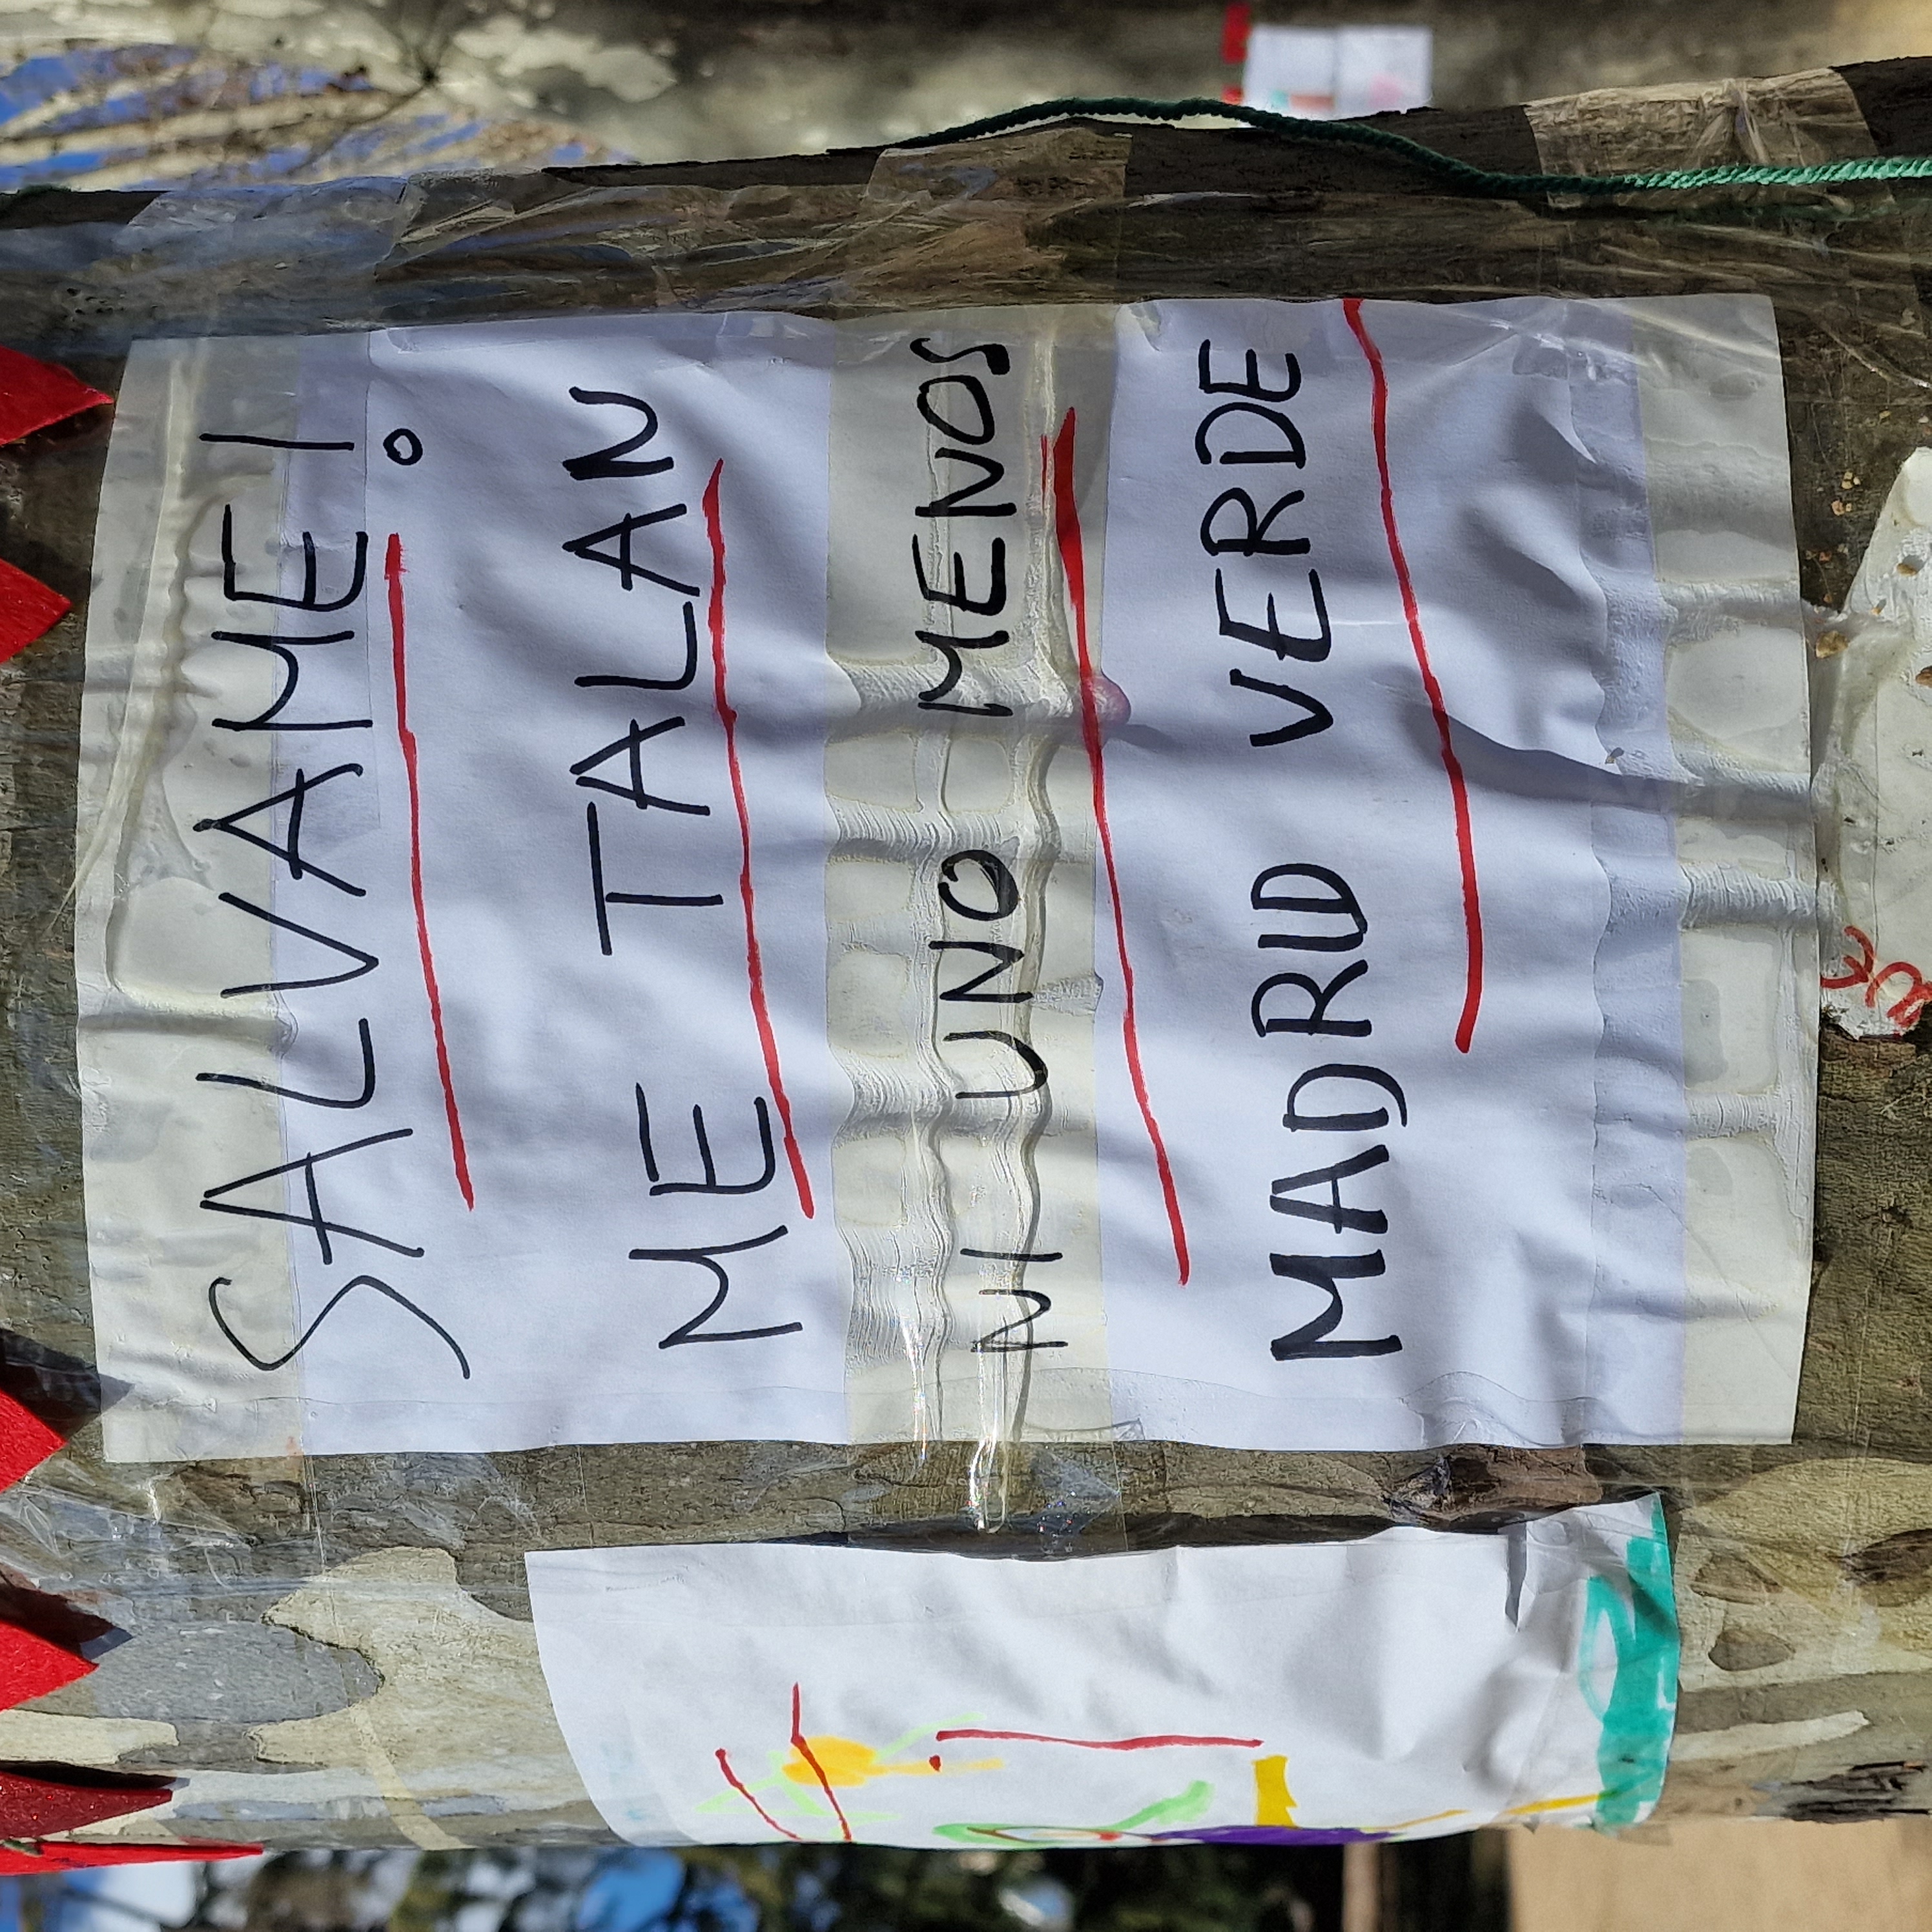 SALVAME!
ME TALAN
NI UNO MENOS
MADRID VERDE